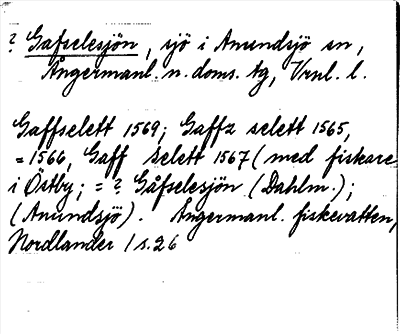 ? Gafselesjön, sjö i Anundsjö sn,
Ångermanl. n. doms. tg, Vrnl. l.
Gaffselett 1569; Gaffz selett 1565,
= 1566, Gaff selett 1567 (med fiskare
i Östby; = ? Gåfselesjön (Dahlm.);
(Anundsjö). Ångermanl. fiskevatten,
Nordlander / s. 26